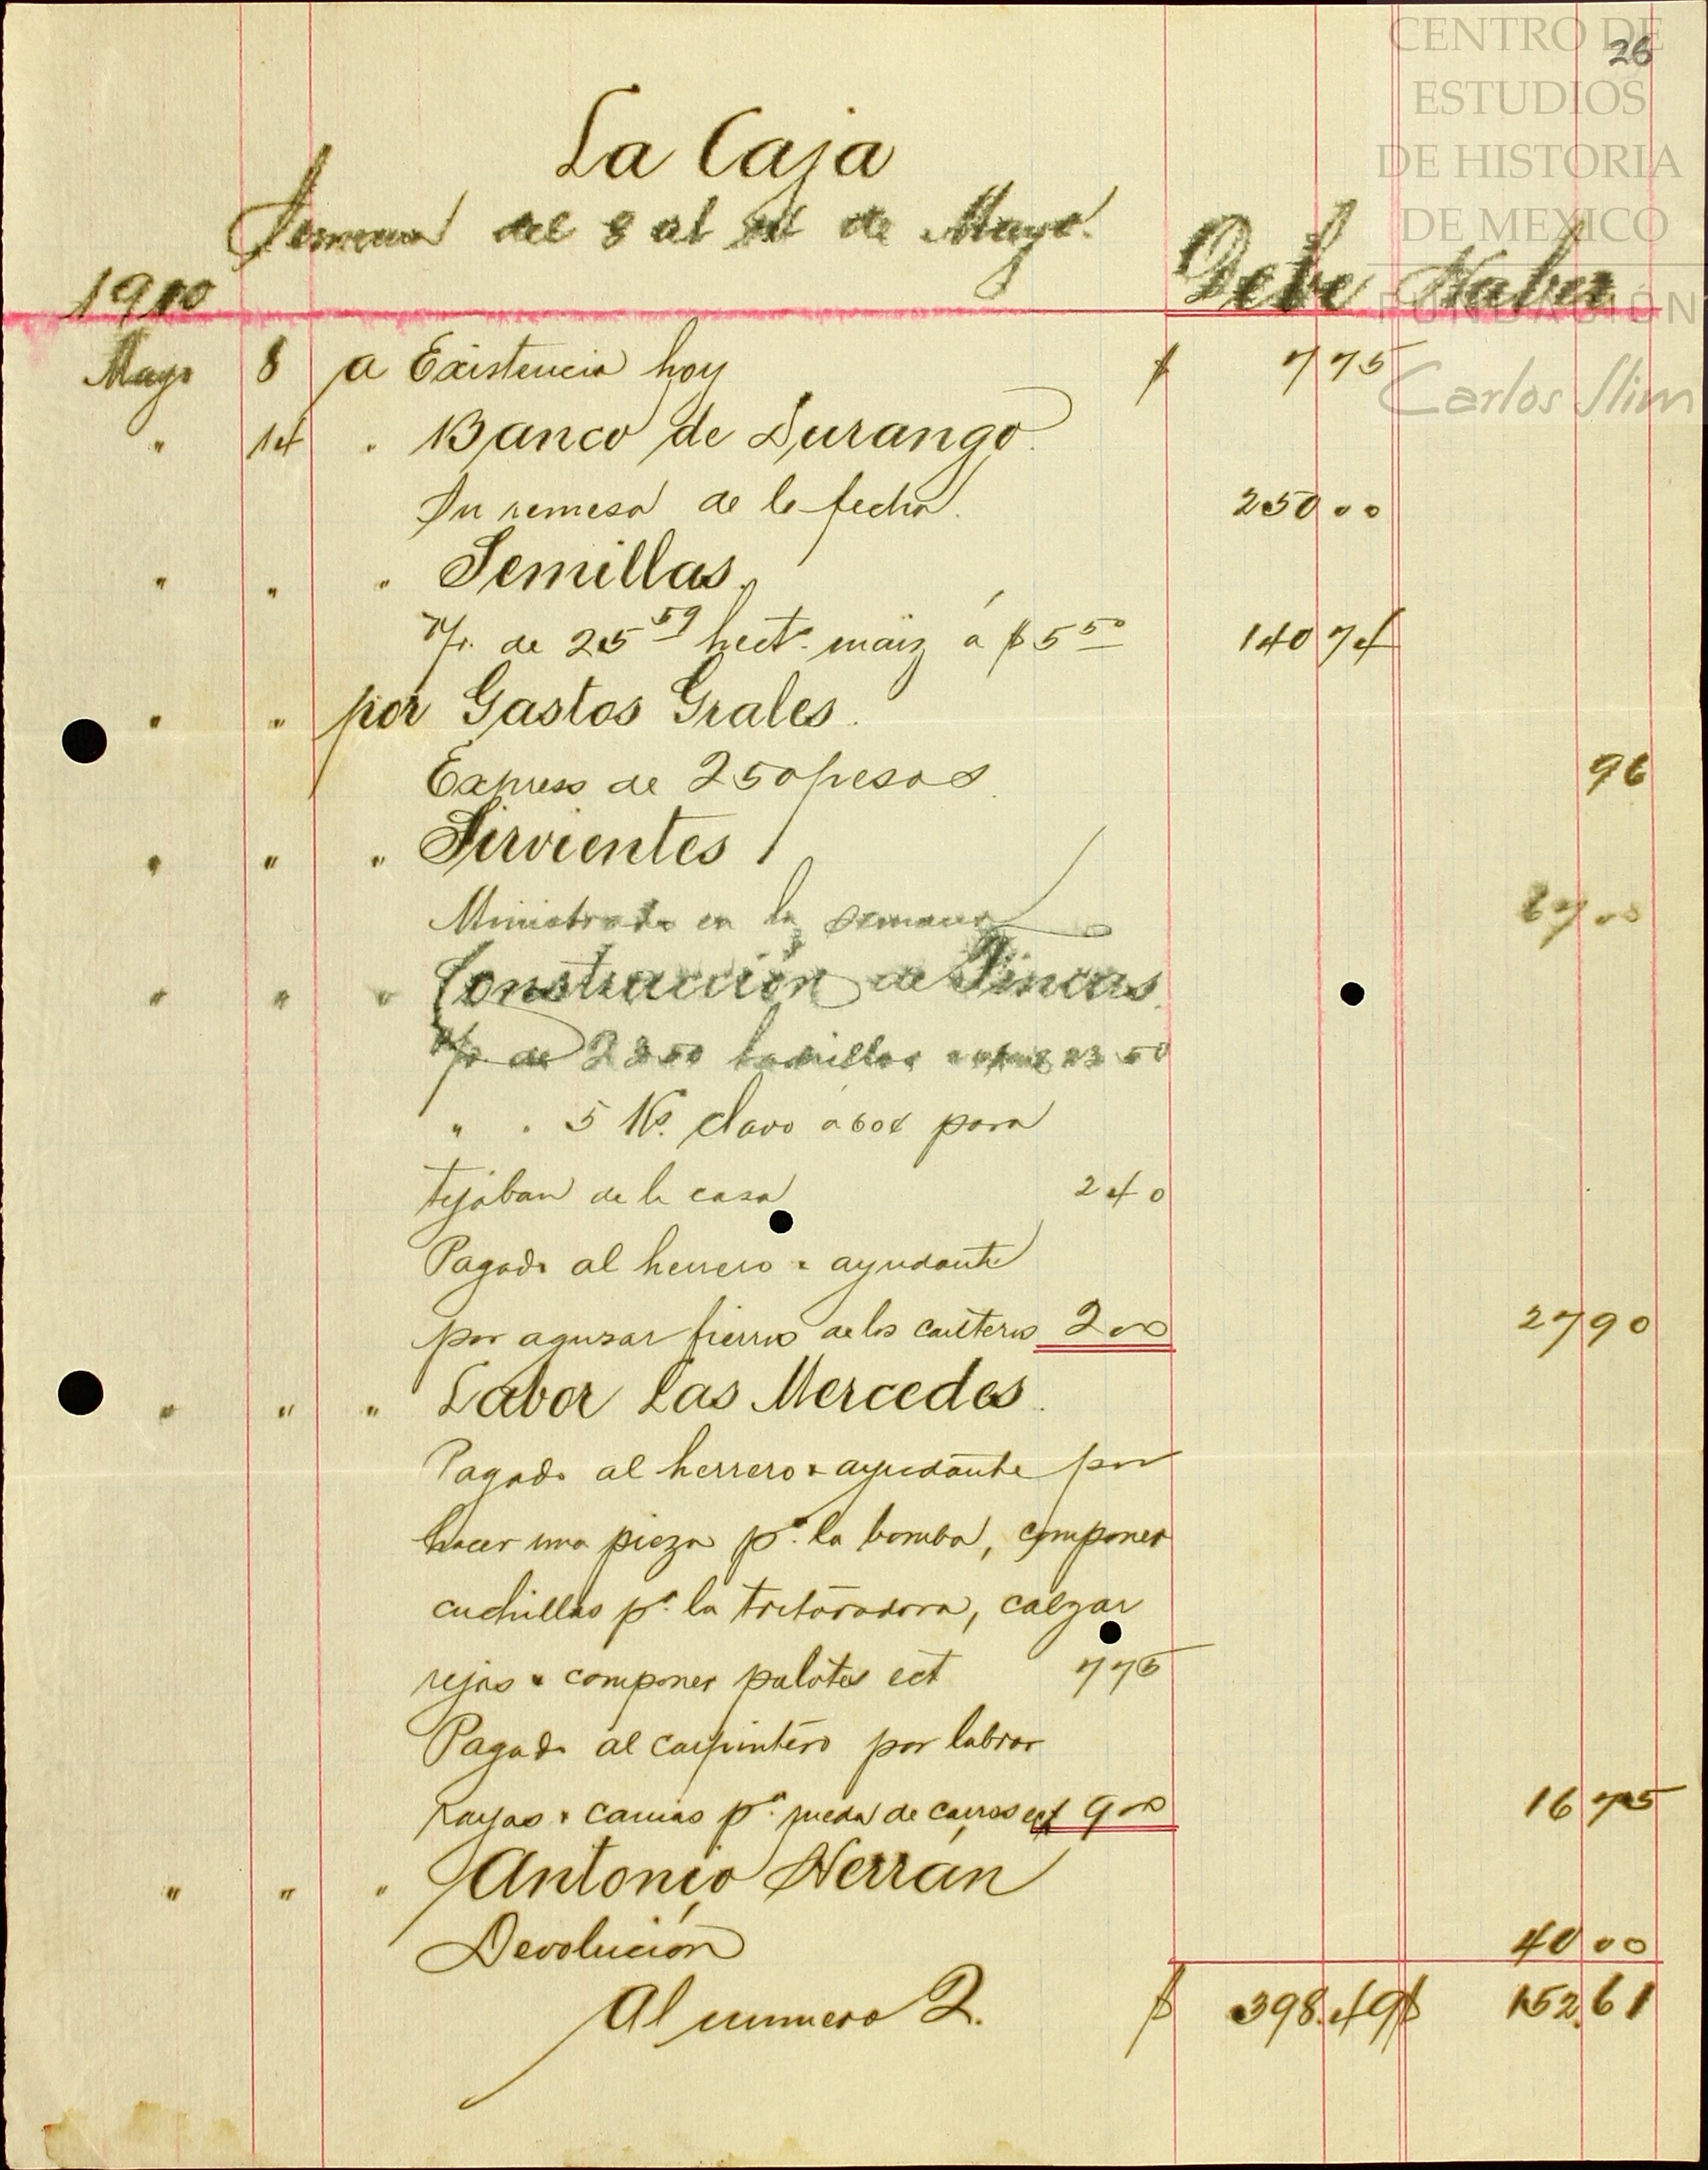 CENTRO DE
ESTUDIOS
DE HISTORIA
DE MEXICO
FUNDACIÓN
Carlos Slim
26
La Caja
Semana del 8 al 14 de Mayo.
1910 Debe Haber
Mayo 8 a Existencia hoy $ 7 75
" 14 " Banco de Durango.
Su remesa de la fecha. 250 00
" " " Semillas.
de 25 59 hect. maiz á $ 5 50 140 74
" " por Gastos Grales.
Express de 250 pesos. 96
" " " Sirvientes
Ministrado en la semana 67 00
" " " Construcción de Fincas.
de 2350 ladrillos 23 50
" " 5 Ks. clavo a 60¢ para
tejaban de la casa 2 40
Pagado al herrero & ayudante
por aguzar fierros de los canteros 2 00 27 90
" " " Labor Las Mercedes.
Pagado al herrero & ayudante por
hacer una pieza pa. la bomba, componer
cuchillas pa. la trituradora, calzar
rejas & componer palotes ect 7 75
Pagado al carpintero por labrar
rayas & camas pa. rueda de carros ect 9 00 16 75
" " " Antonio Herrán
Devolución 40 00
Al numero 2. $ 398.49 $ 152.61